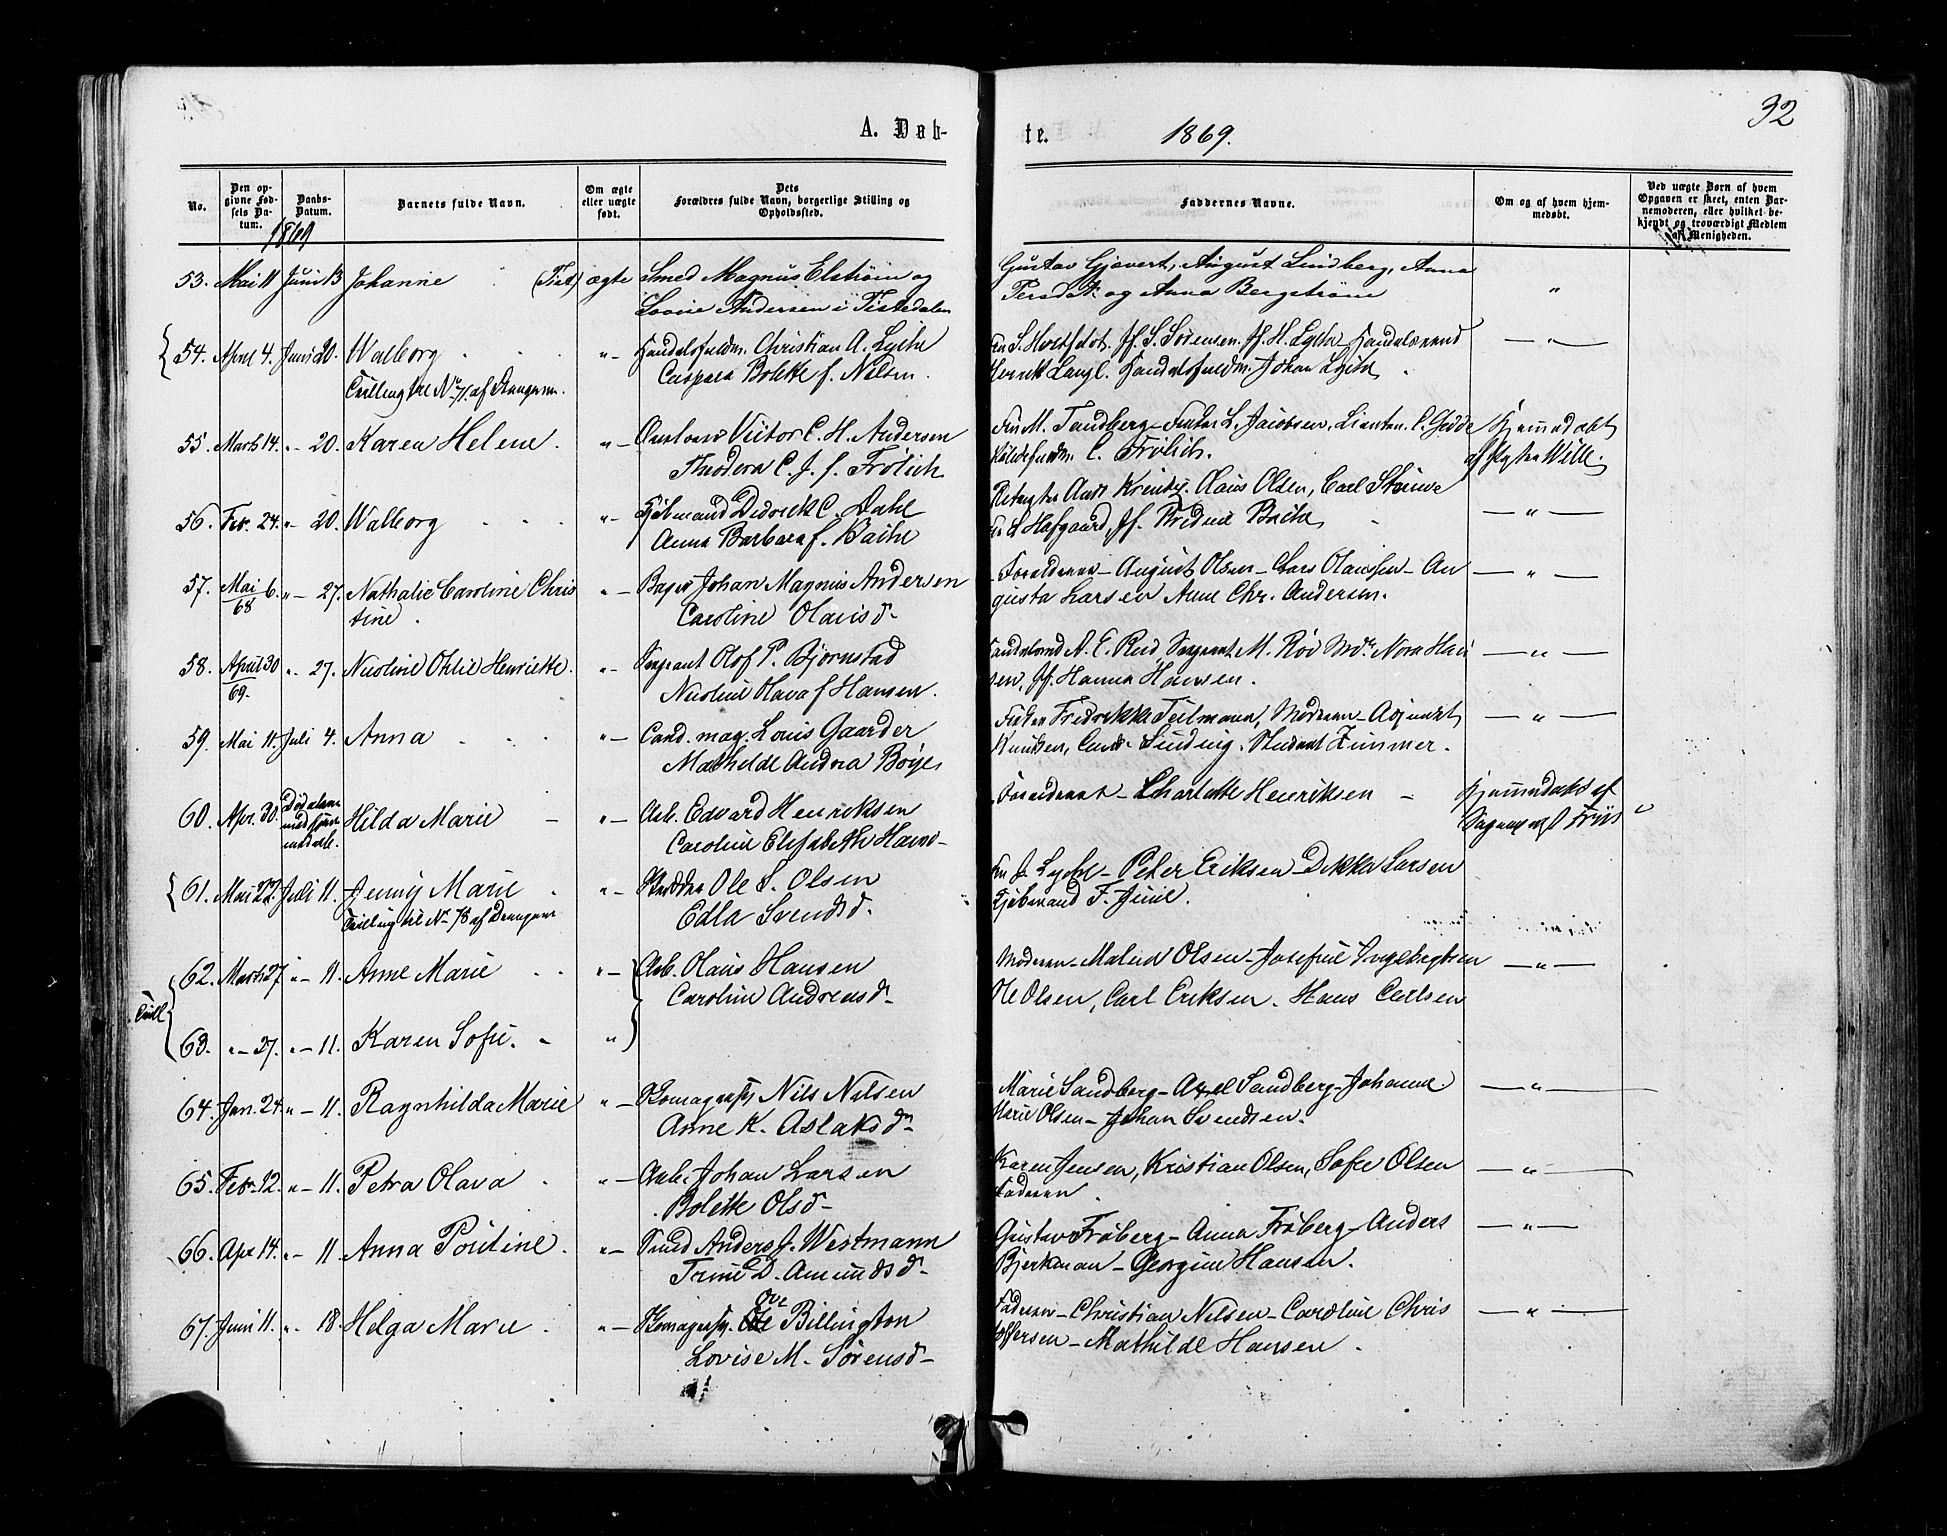 32
A. Døb-
te. 1869.
No.
Den op-
givne Fød-
sels Da-
tum.
Daabs-
Datum.
Barnets fulde Navn.
Om ægte
eller uægte
født.
Dets
Forældres fulde Navn, borgerlige Stilling og
Opholdssted.
Faddernes Navne.
Om og af hvem hjem-
medøbt.
Ved uægte Børn af hvem
Opgaven er skeet, enten Bar-
nemoderen, eller hvilket be-
kjendt og troværdigt Medlem
af Menigheden.
1869
53. Mai 11 Juni 13 Johanne (Tist) ægte Smed Magnus Elstrøm og Gustav Gjevert, August Lindberg, Anna
Lovise Andersen i Tistedalen Persd. og Anna Bergstrøm "
54. April 4. Juni 20. Walborg " Handelsfuldm. Christian A. Lyche Fru S. Jf. S. Sørensen. Jf. H. Lyche
Tvilling til No 71. af Drengene. Caspara Bolette f. Nilsen. Henrik Langl. Handelsfuldm. Johan Lyche — " —
55. Marts 14. " 20. Karen Helene. " Victor C. H. Andersen Fru M. Tandberg – Frøken L. Jacobsen, Lieuten. C. Gedde Hjemmedøbt
Theodora C. J. f. Frølich C. Frølich. af Wille.
56. Febr. 24. " 20. Walborg " Kjøbmand Didrick C. Dahl Olaus Olsen, Carl
Anna Barbara f. Bache Hafgaard, Jf. Fredrik Bache — " —
57. Mai 6. " 27. Nathalie Caroline Chris " Bager Johan Magnus Andersen Forældrene – August Olsen – Lars Olaussen – Au — " —
68 tine. Caroline Olausd. gusta Larsen Anne Chr. Andersen.
58. April 30 " 27. Nicoline Ohlie Henriette. " Sergeant Olof P. Bjørnstad A. E. Rud Sergeant M. Røv Nora Han — " —
69. Nicoline Olava f Hansen. sen, Jf. Hanna Hansen.
59. Mai 11. Juli 4. Anna " Cand. mag. Louis Gaarder Frøken Fredrikke Teilmann, Moderen – Adjunkt — " —
Mathilde Andrea Bøye Knudsen, Cand. Sinding. Student Zimmer.
60. Apr. 30. Død Hilda Marie " Arb. Edvard Henriksen Forældrene – Charlotte Henriksen Hjemmedøbt af
Caroline Elisabeth Hansd. Friis
61. Mai 22. Juli 11. Jenny Marie " Skrædder Ole S. Olsen Fru J. Lyche – Peter Eriksen – Larsen
Tvilling til No 78 af Drengene Edla Svendsd. Kjøbmand F. Juul.
62. Marts 27 " 11. Anne Marie " Arb. Olaus Hansen Moderen – Malena Olsen – Josefine Ingebregtsen — " —
Tvill. Caroline Andreasd. Ole Olsen, Carl Eriksen. Hans Carlsen
63. " 27. " 11. Karen Sofie. "
64. Jan. 24. " 11. Ragnhilda Marie " Nils Nilsen Marie Sandberg – Axel Sandberg – Johanne — " —
Anne K. Aslaksd. Marie Olsen – Johan Svendsen.
65. Febr 12. " 11. Petra Olava " Arb. Johan Larsen Karen Jensen, Kristian Olsen, Sofie Olsen — " —
Bolette Olsd. Faderen.
66. Apr 14. " 11. Anna Poutine. " Smed Anders J. Westmann Gustav Frøberg – Anna Frøberg – Anders — " —
Trine D. Amundsd. Bjerkman – Georgine Hansen.
67. Juni 11. " 18. Helga Marie " Ove Billington Faderen – Christian Nilsen – Caroline Chris — " —
Lovise M. Sørensd. toffersen – Mathilde Hansen.